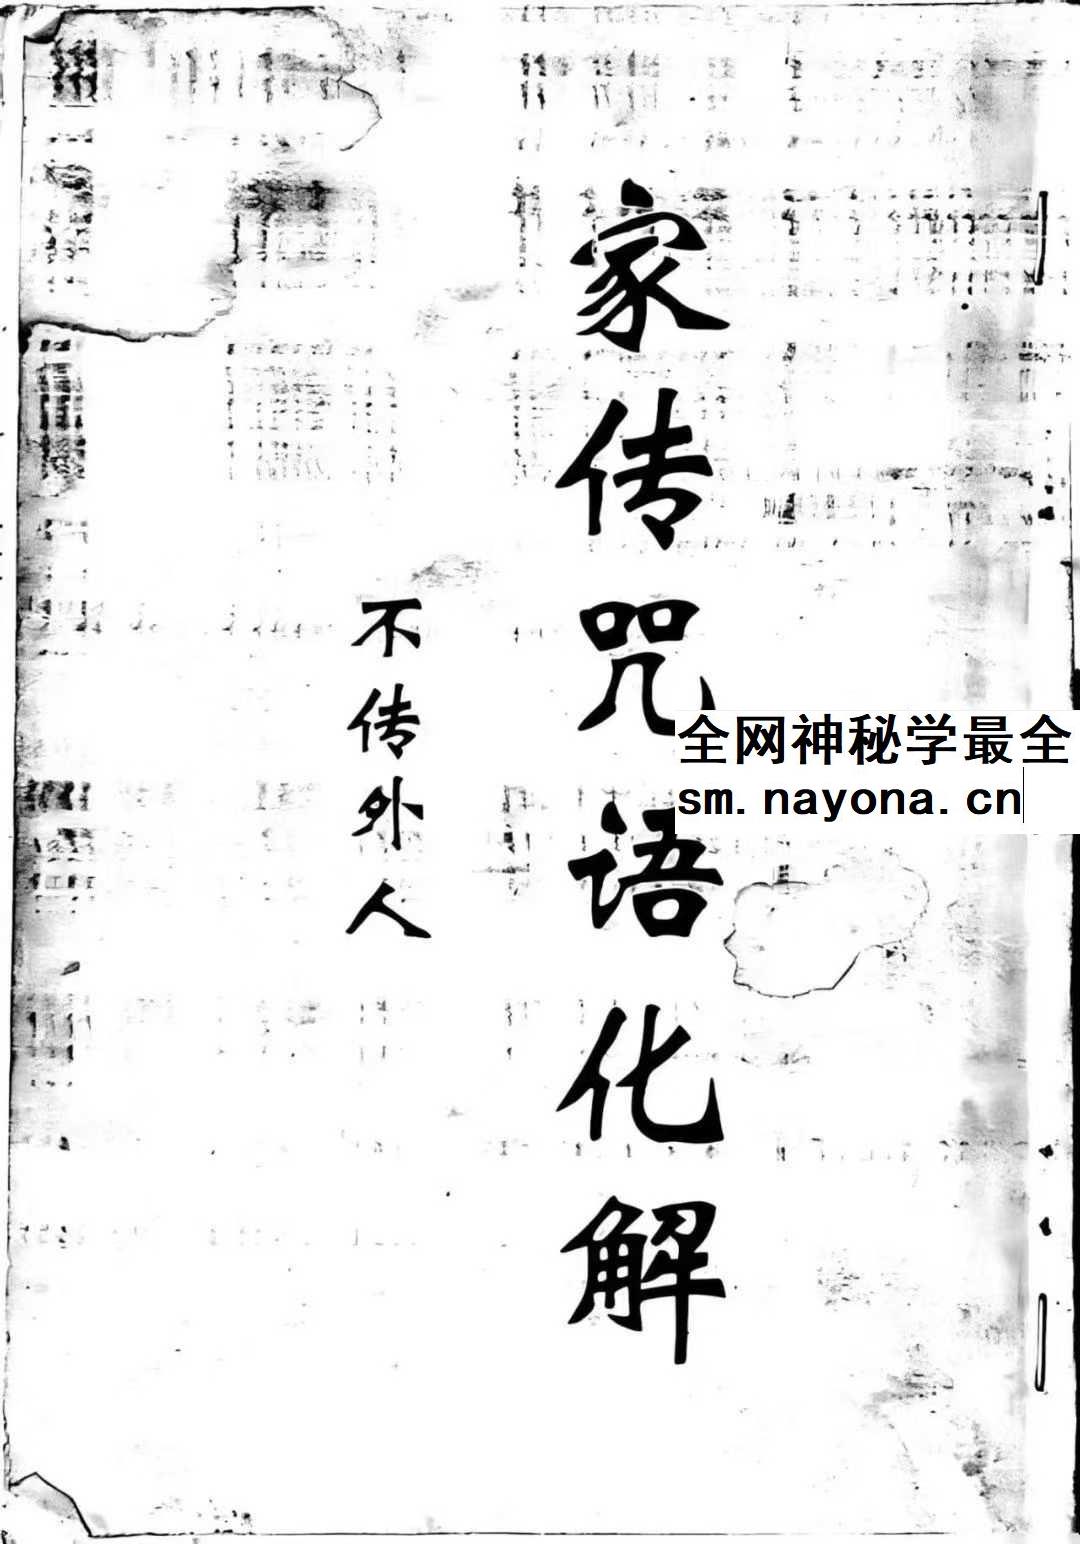 家传咒语化解
不传外人
全网神秘学最全
sm.nayona.cn